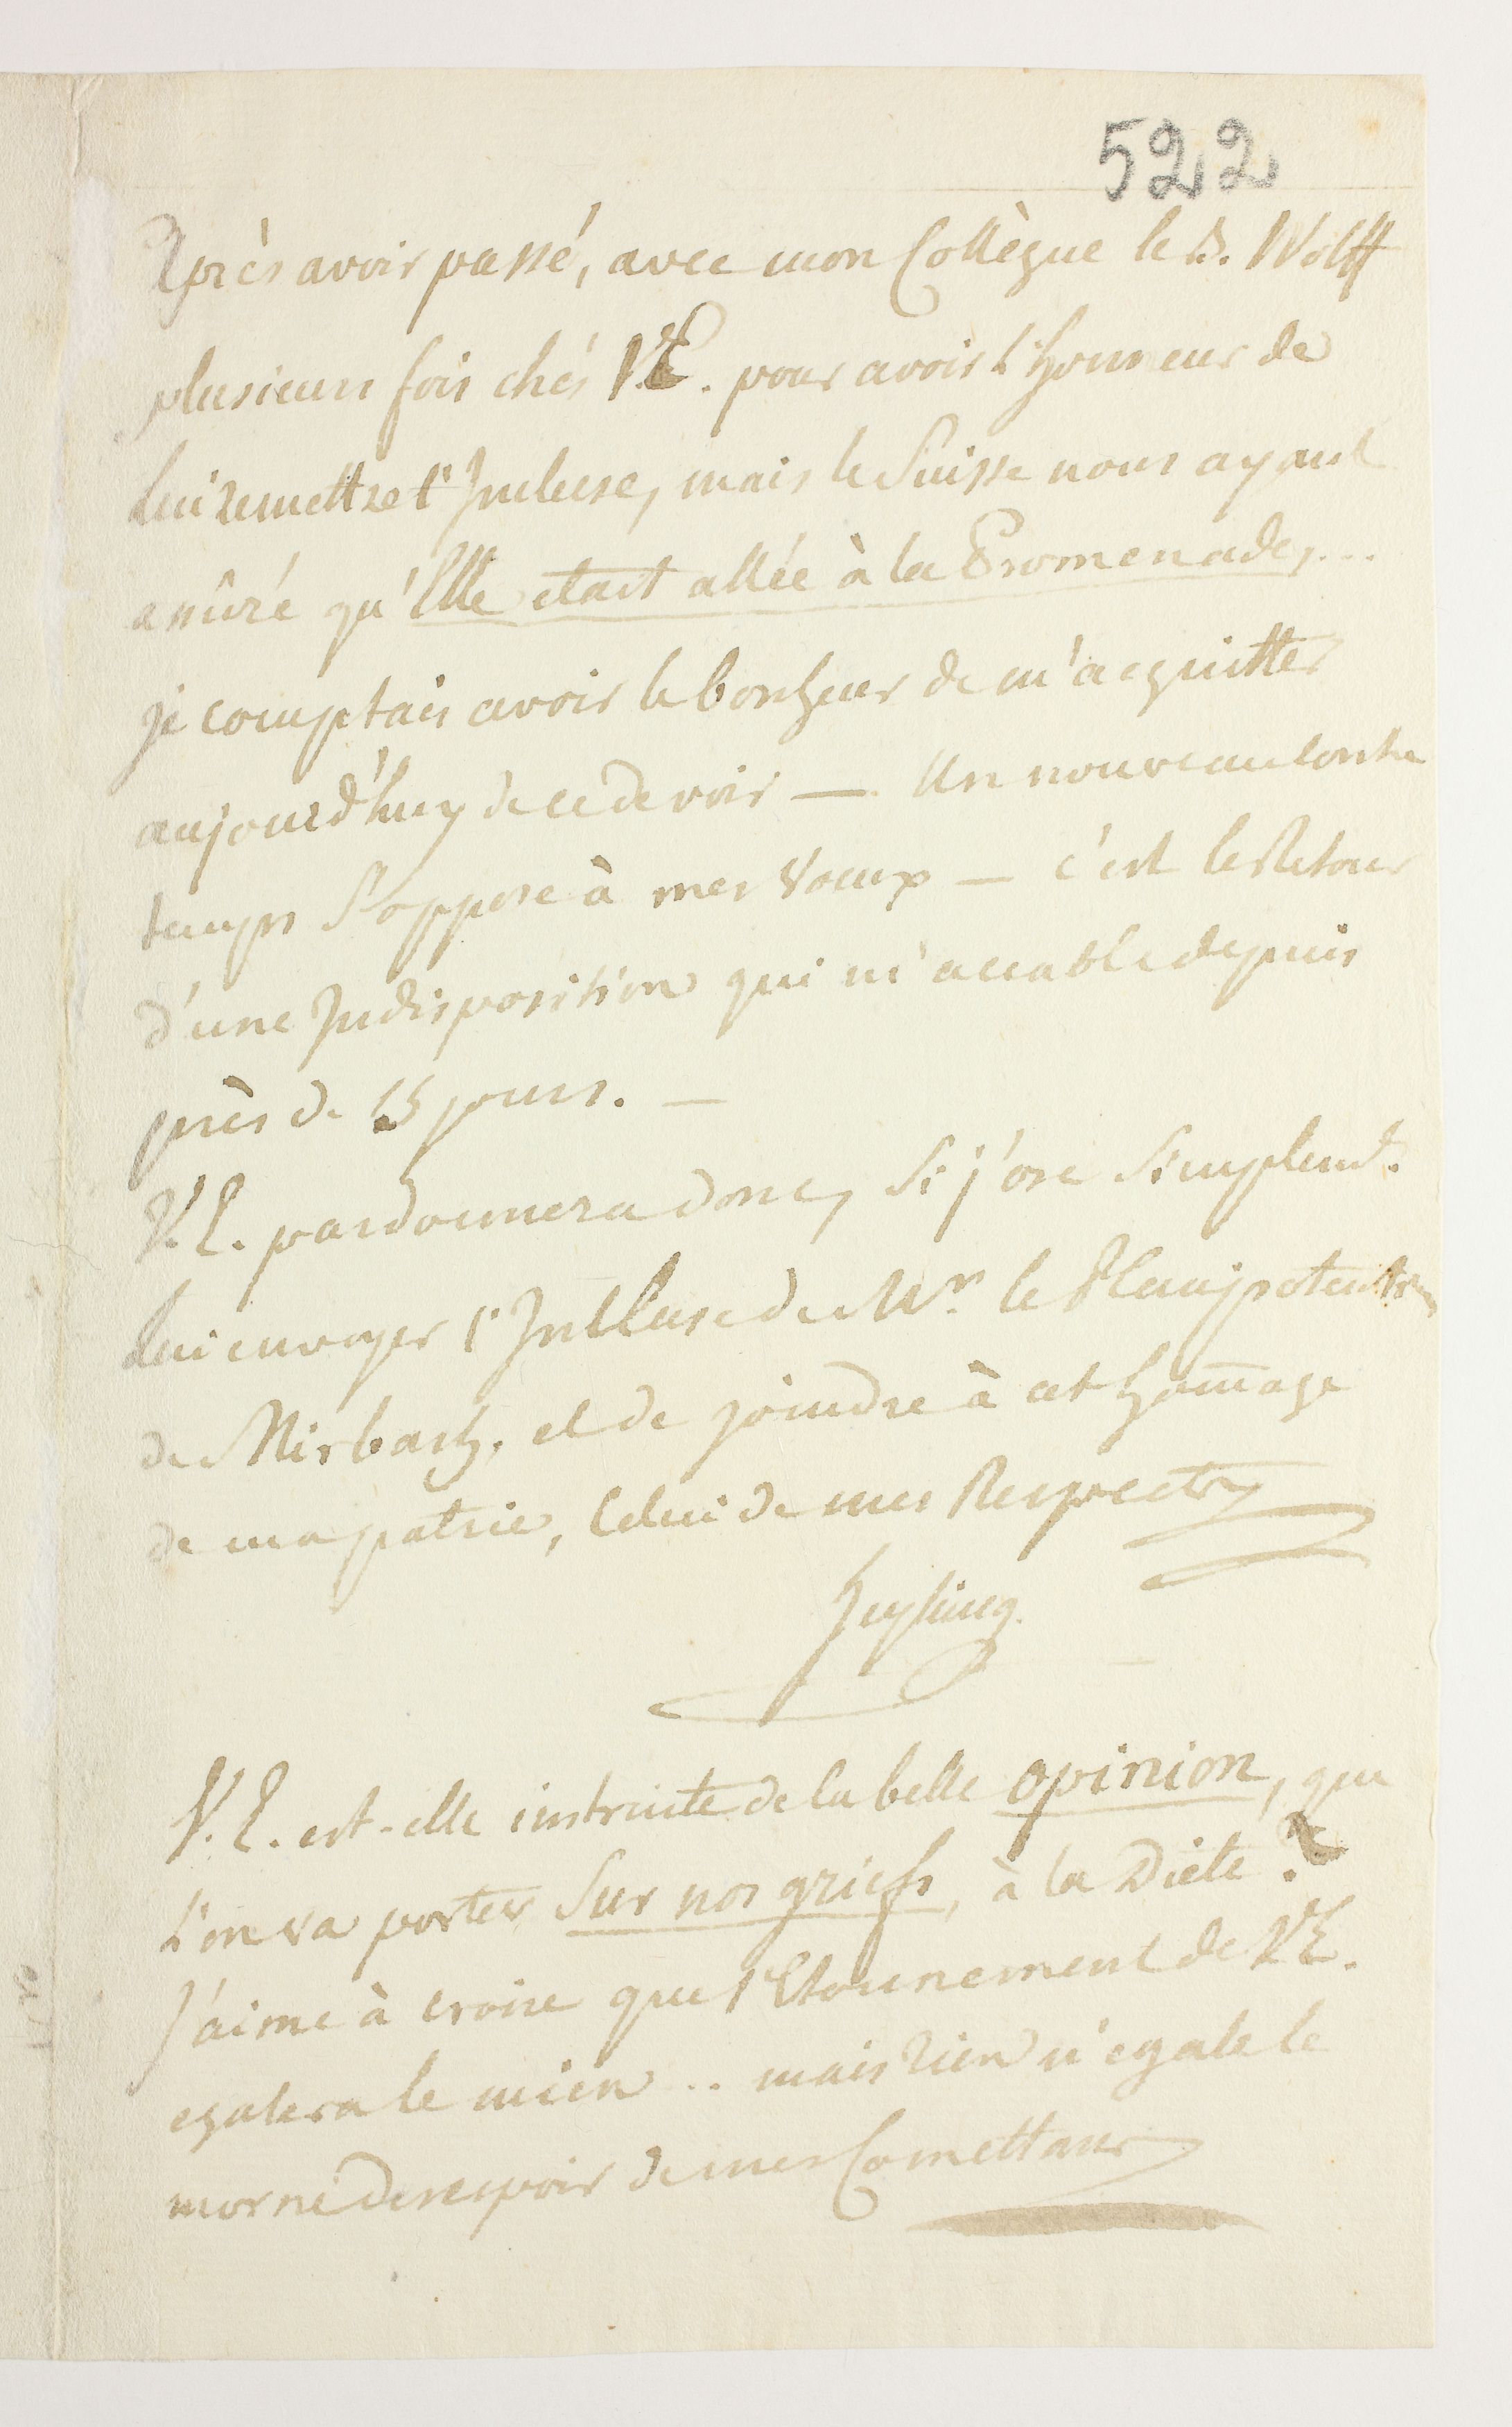 522
Après avoir passé, avec mon Collègue le B. Wolff
plusieurs fois chés V.E. pour avoir l'honneur de
Lui remettre l'Incluse, mais le Suisse nous ayant
assûré qu'Elle etait allée à la Promenade, ...
je comptais avoir le bonheur de m'acquitter
aujourd'huy de ce devoir — Un nouveau contre
temps s'oppose à mes voeux — c'est le Retour
d'une Indisposition qui m'accable depuis
près de 15 jours. —
V.E. pardonnera donc, si j'ose simplemt.
Lui envoyer l'Incluse de Mr. le Plenipotentiaire
de Mirbach, et de joindre à cet hom̄age
de ma patrie, Celui de mes Respects
Heyking.
V.E. est-elle instruite de la belle opinion, que
l'on va porter sur nos griefs, à la Diète ?
J'aime à croire que l'Etonnement de V.E.
egalera le mien .. mais rien n'egale le
morne desespoir de mes Comettans